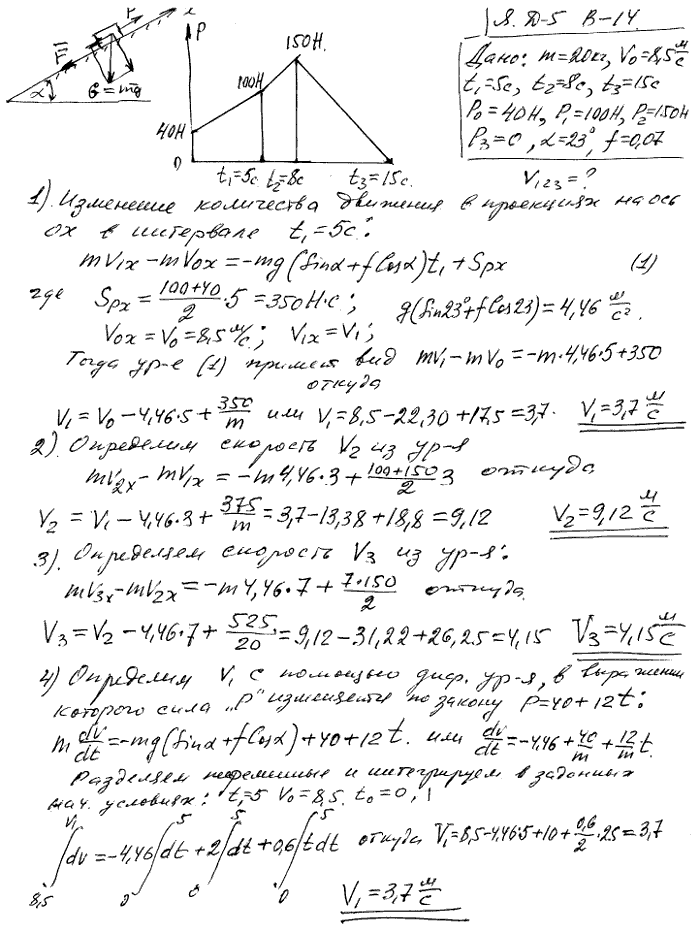 Я. Д-5 В-14.
Дано: m=20кг, V₀=8,5 м/с
t₁=5с, t₂=8с, t₃=15с
P₀=40Н, P₁=100Н, P₂=150Н
P₃=0, α=23°, f=0,07
V₁₂₃=?
x
P
F
α
G=mg
P
150Н.
100Н
40Н
0
t₁=5с t₂=8с t₃=15с.
1). Изменение количества движения в проекциях на ось
ox в интервале t₁=5с:
mV₁ₓ-mV₀ₓ=-mg(Sinα+fCosα)t₁+Sₚₓ (1)
где Sₚₓ=(100+40)/2·5=350Н·с; g(Sin23°+fCos23)=4,46 м/с².
V₀ₓ=V₀=8,5 м/с; V₁ₓ=V₁;
Тогда ур-е (1) примет вид mV₁-mV₀=-m·4,46·5+350
откуда
V₁=V₀-4,46·5+350/m или V₁=8,5-22,30+17,5=3,7. V₁=3,7 м/с
2). Определим скорость V₂ из ур-я
mV₂ₓ-mV₁ₓ=-m4,46·3+(100+150)/2 3 откуда
V₂=V₁-4,46·3+375/m=3,7-13,38+18,8=9,12 V₂=9,12 м/с
3). Определяем скорость V₃ из ур-я:
mV₃ₓ-mV₂ₓ=-m4,46·7+7·150/2 откуда
V₃=V₂-4,46·7+525/20=9,12-31,22+26,25=4,15 V₃=4,15 м/с
4) Определим V₁ с помощью диф. ур-я, в выражении
которого сила „P" изменяется по закону P=40+12t:
m dv/dt=-mg(Sinα+fCosα)+40+12t. или dv/dt=-4,46+40/m+12/m t.
Разделяем переменные и интегрируем в заданных
нач. условиях: t₁=5 V₀=8,5. t₀=0,
∫₈,₅^V₁ dv=-4,46∫₀⁵dt+2∫₀⁵dt+0,6∫₀⁵tdt откуда V₁=8,5-4,46·5+10+0,6/2·25=3,7
V₁=3,7 м/с